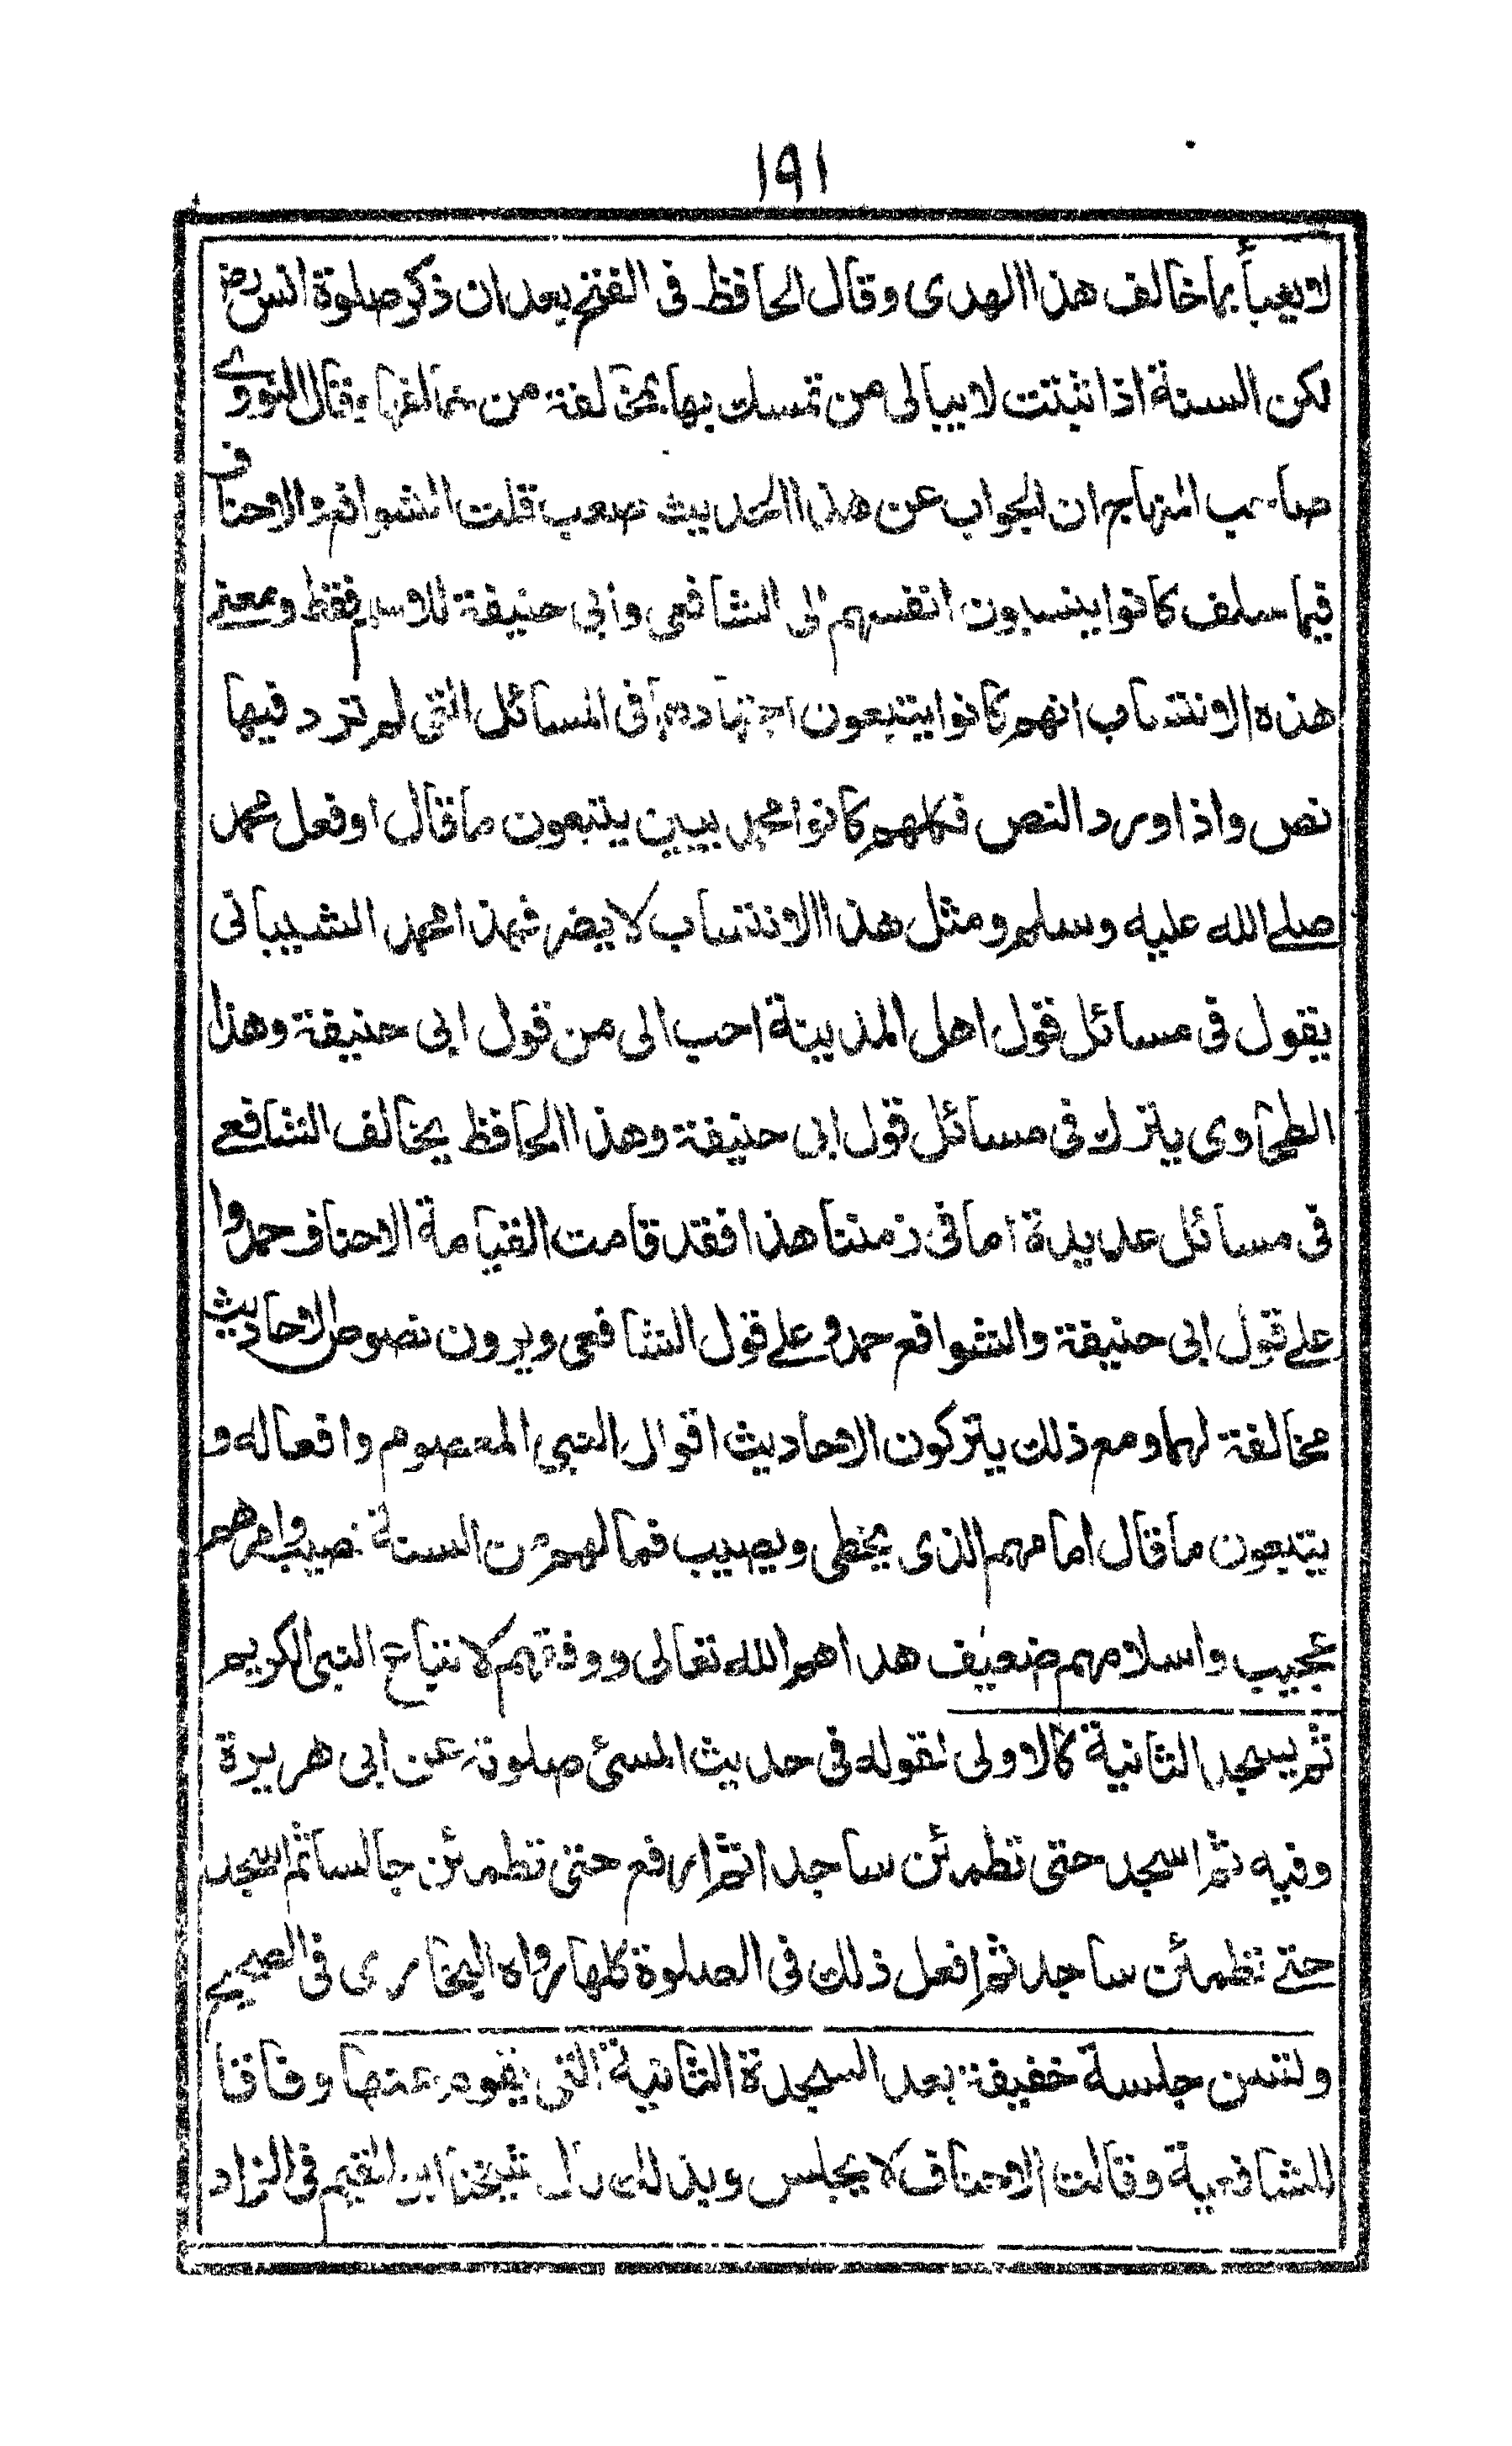 ١٩١
لا يعبأ بما خالف هذا الهدى وقال الحافظ فى الفتح بعد ان ذكر صلوة انس رض
لكن السنة اذا ثبتت لا يبالى من تمسك بها بمخالفة من خالفها وقال النووى
صاحب المنهاج ان الجواب عن هذا الحديث صعب قلت الشوافع والاحناف
فيما سلف كانوا ينسبون انفسهم الى الشافعى وابى حنيفة للاسم فقط ومعنے
هذه الانتساب انهم كانوا يتبعون اجتهادهما فى المسائل التى لم ترد فيها
نص واذا ورد النص فكلهم كانوا محمديين يتبعون ما قال او فعل محمد
صلے الله عليه وسلم ومثل هذا الانتساب لا يضر فهذا محمد الشيبانى
يقول فى مسائل قول اهل المدينة احب الى من قول ابى حنيفة وهذا
الطحاوى يترك فى مسائل قول ابى حنيفة وهذا الحافظ يخالف الشافعے
فى مسائل عديدة اما فى زمننا هذا فقد قامت القيامة الاحناف حمدوا
علے قول ابى حنيفة والشوافع حمدو علے قول الشافعى ويرون نصوص الاحاديث
مخالفة لهما ومع ذلك يتركون الاحاديث اقوال النبى المعصوم وافعاله و
يتبعون ما قال امامهم الذى يخطى ويصيب فما لهم من السنة نصيب وامرهم
عجيب واسلامهم ضعيف هداهم الله تعالى ووفقهم لاتباع النبى الكريم
ثم يسجد الثانية كالاولى لقوله فى حديث المسئ صلوته عن ابى هريرة
وفيه ثم اسجد حتى تطمئن ساجدا ثم ارفع حتى تطمئن جالسا ثم اسجد
حتے تطمئن ساجد ثم افعل ذلك فى الصلوة كلها رواه البخارى فى الصحيح
ولتسن جلسة خفيفة بعد السجدة الثانية التى يقوم عنها وفاقا
للشافعية وقالت الاحناف لا يجلس وبذلك قال شيخنا ابن القيم فى الزاد